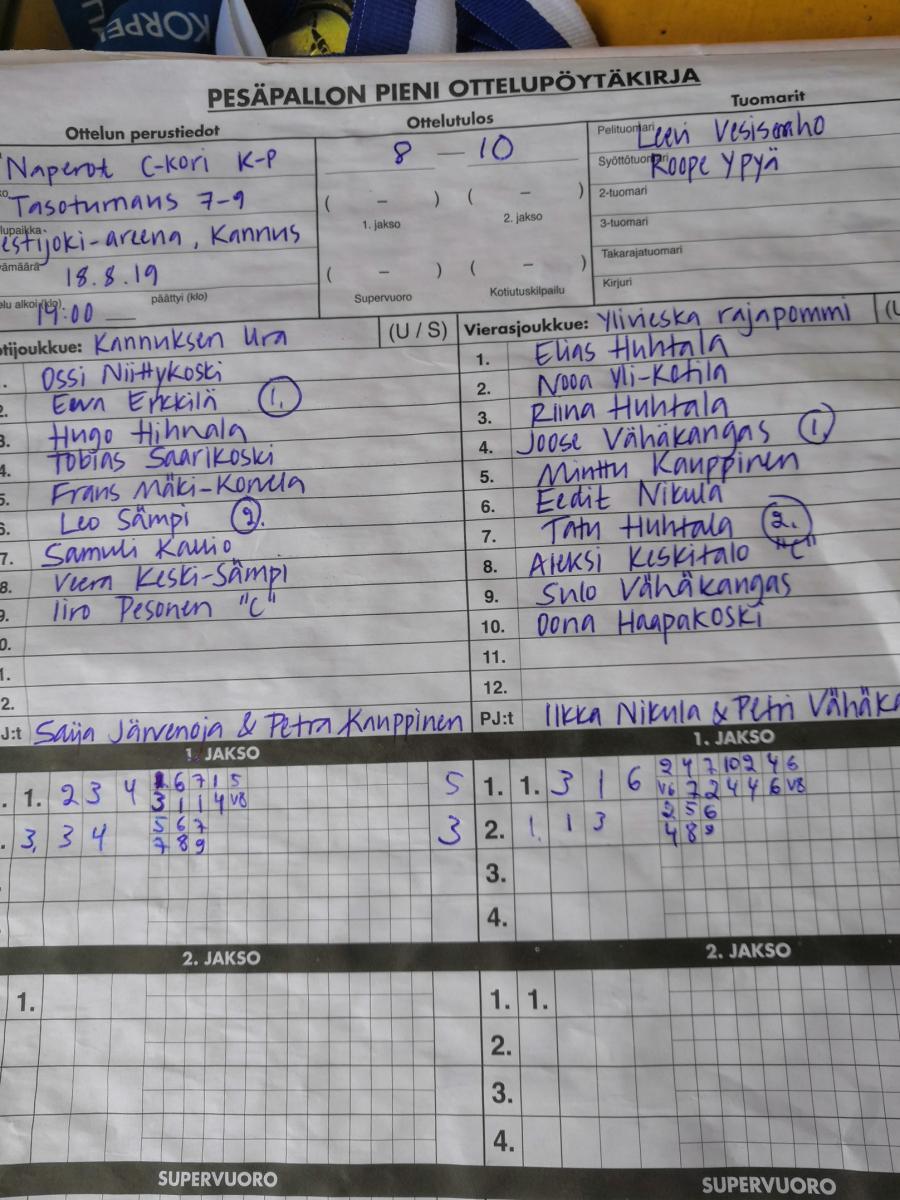 KORPE
PESÄPALLON PIENI OTTELUPÖYTÄKIRJA
Ottelun perustiedot
Ottelutulos
Tuomarit
Naperot C-kori K-P
8 — 10
Pelituomari Leevi Vesisenaho
Syöttötuomari Roope Ypyä
Tasoturnaus 7-9
( – ) ( – )
2-tuomari
1. jakso 2. jakso
3-tuomari
lupaikka estijoki-areena, Kannus
Takarajatuomari
vämäärä 18.8.19
( – ) ( – )
Kirjuri
elu alkoi (klo) 14:00 päättyi (klo)
Supervuoro Kotiutuskilpailu
otijoukkue: Kannuksen Ura (U / S)
Vierasjoukkue: Ylivieska rajapommi (U
1. Ossi Niittykoski
2. Eeva Erkkilä 1.
3. Hugo Hihnala
4. Tobias Saarikoski
5. Frans Mäki-Konela
6. Leo Sämpi 2.
7. Samuli Kallio
8. Veera Keski-Sämpi
9. Iiro Pesonen "C"
0.
1.
2.
J:t Saija Järvenoja & Petra Kauppinen
1. Elias Huhtala
2. Nooa Yli-Kotila
3. Riina Huhtala
4. Joose Vähäkangas 1
5. Minttu Kauppinen
6. Eedit Nikula
7. Tatu Huhtala 2.
8. Aleksi Keskitalo "C"
9. Sulo Vähäkangas
10. Oona Haapakoski
11.
12.
PJ:t Ilkka Nikula & Petri Vähäka
1. JAKSO
. 1. 2 3 4 6 7 1 5
3 1 1 4 V8
5
. 3. 3 4 5 6 7
7 8 9
3
1. JAKSO
1. 1. 3 1 6 2 4 7 10 2 4 6
V6 7 2 4 4 6 V8
2. 1. 1 3 2 5 6
4 8 9
3.
4.
2. JAKSO
1.
2. JAKSO
1. 1.
2.
3.
4.
SUPERVUORO
SUPERVUORO